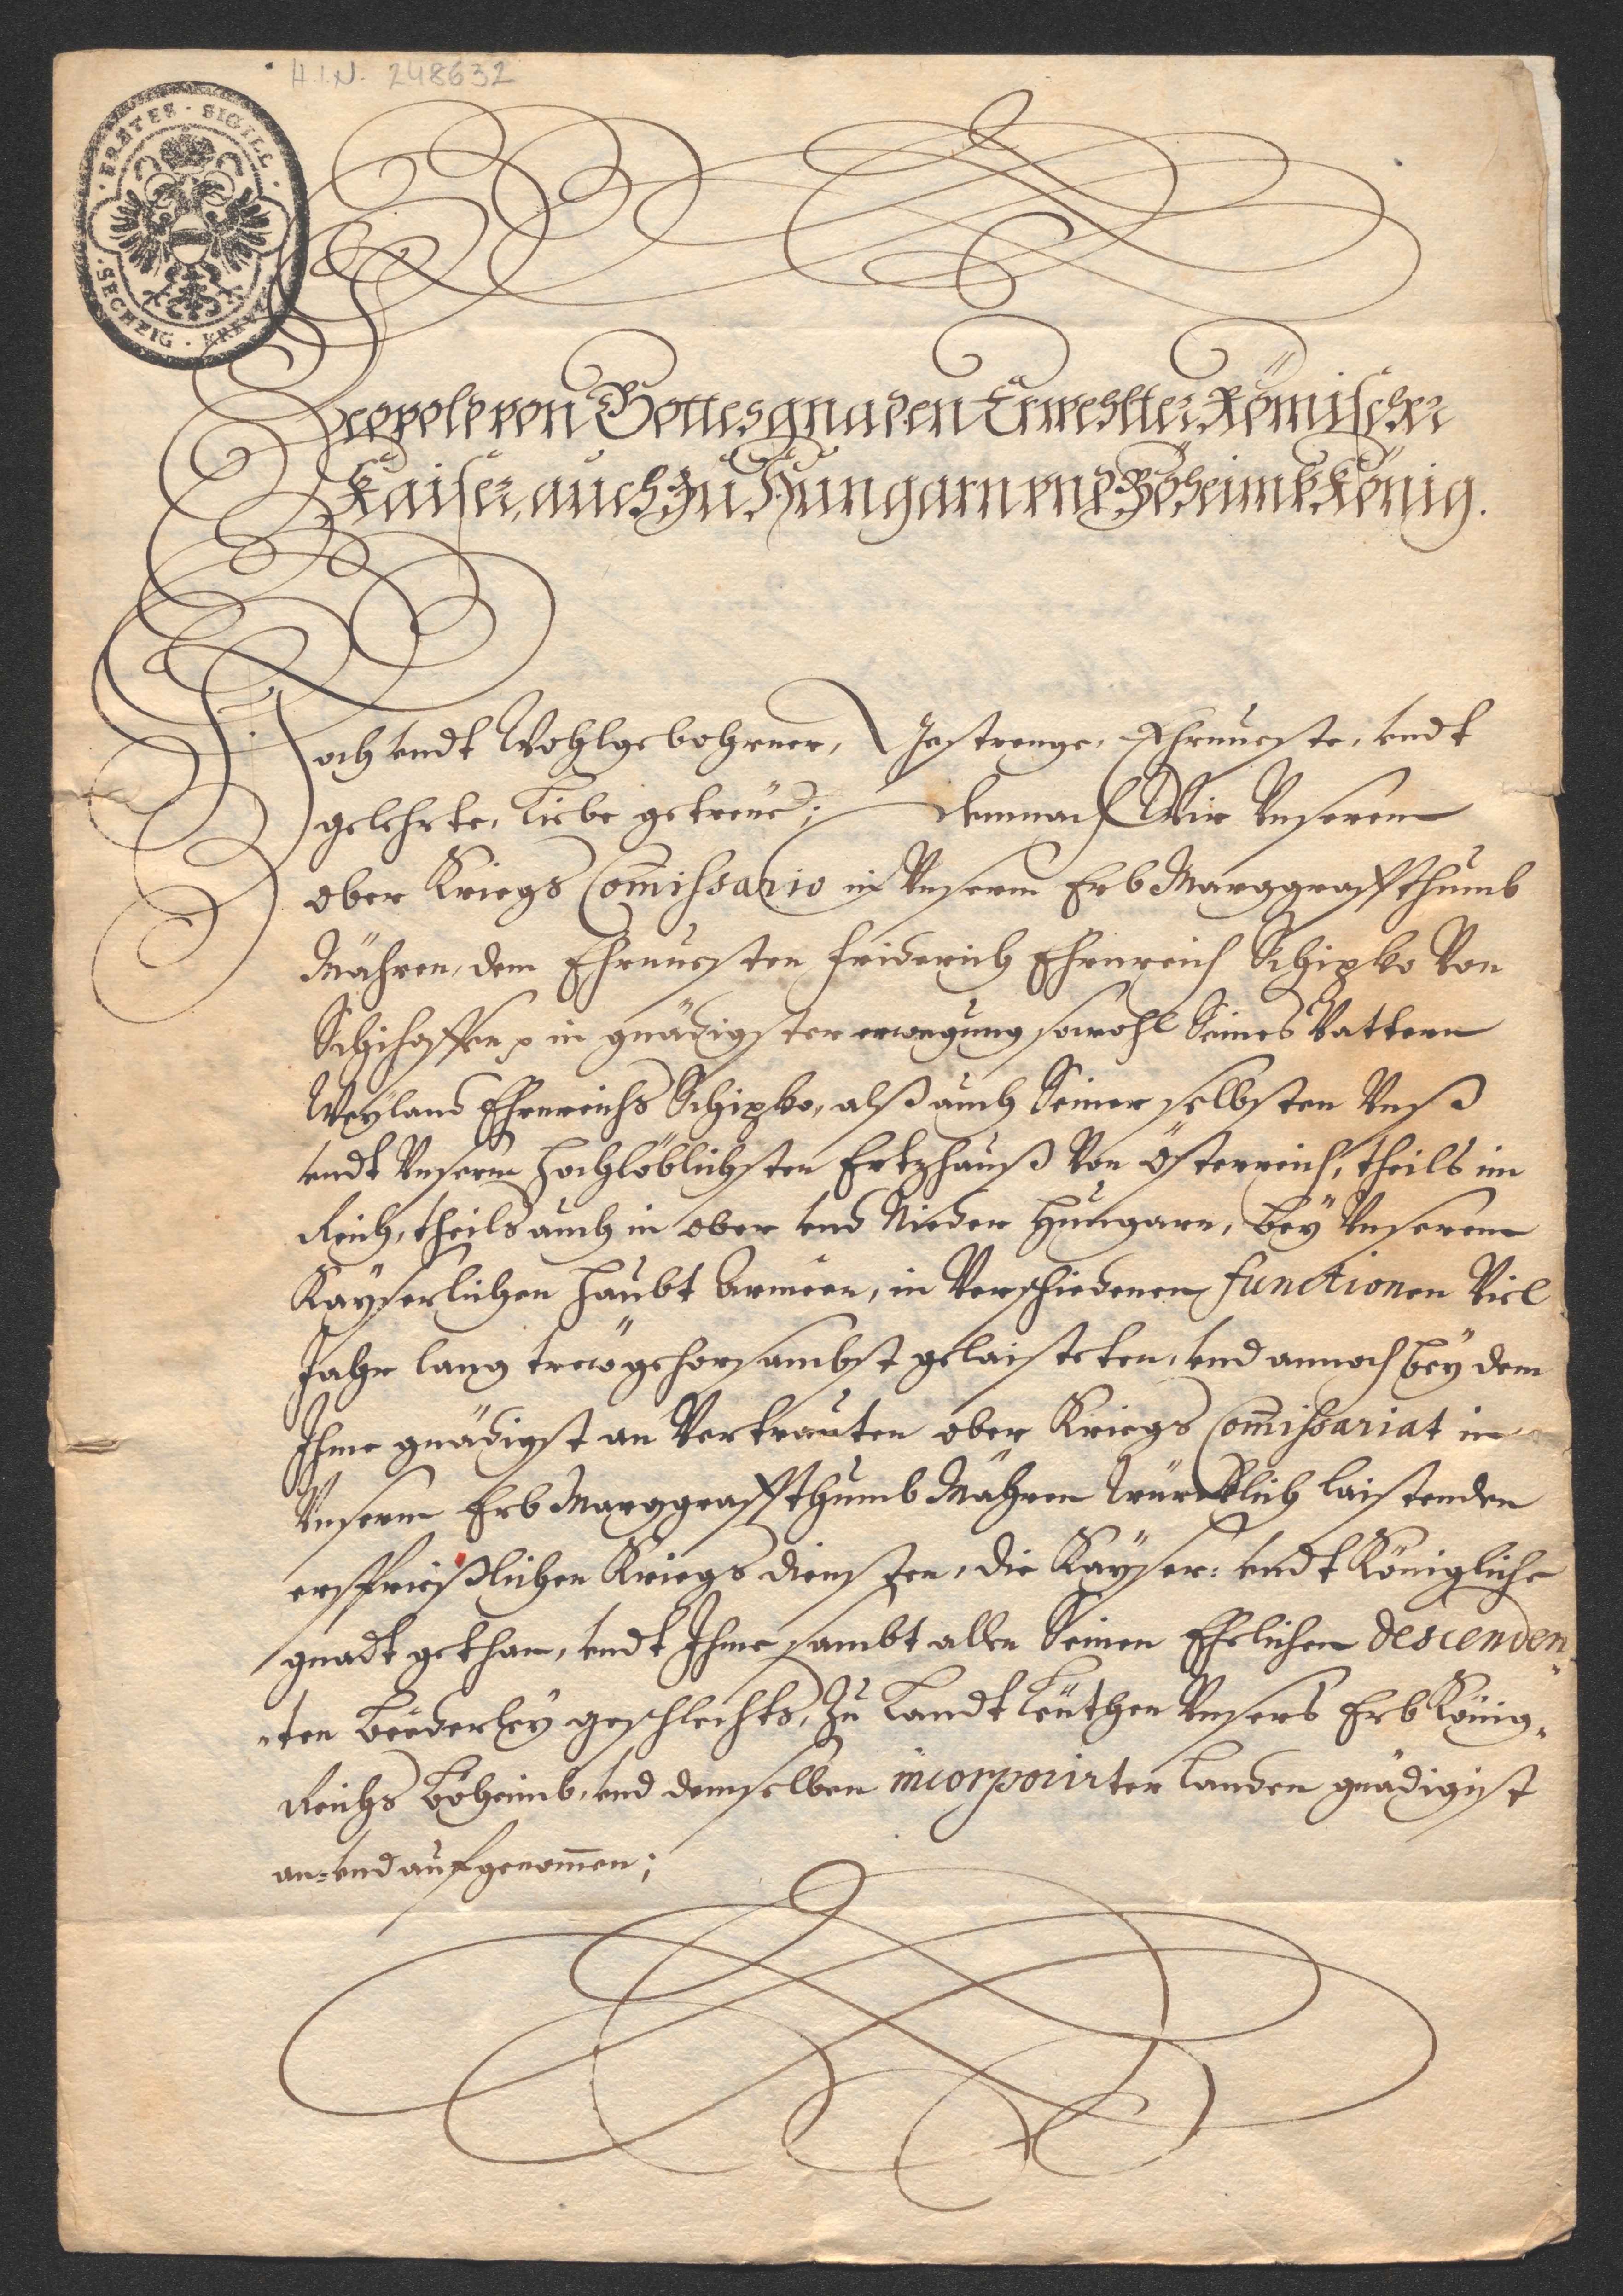 H.I.N. 248632
ERSTES · SIGILL ·
SECHZIG · KREVZ
Leopold von Gottes gnaden Erwehlter Römischer
Kaiser, auch zu Hungarn vnd Böheimb König.
Hoch vndt Wohlgebohrner, Gestrenge, Ehrnueste, vndt
gelehrte, Liebe getreüe; Demnach Wir Vnserem
ober Kriegs Com̄issario in Vnserm Erb Marggraffthumb
Mähren, dem Ehrnuesten Friderich Ehrnreich Schipko Von
Schihoffen in gnädigster erwegung sowohl Seines Vattern
Weyland Ehrnreichs Schipko, alß auch Seiner selbsten Vnß
vndt Vnserm hochlöblichsten Ertzhauß Von Österreich, theils im
Reich, theils auch in ober vnd Nieder Hungarn, bey Vnserem
Kayserlichen haubt Arméen, in Verschiedenen functionen Viel
Jahr lang trew gehorsambst gelaisteten, vnd annoch bey dem
Ihme gnädigst an Vertrauten ober Kriegs Com̄issariat in
Vnserm Erb Marggraffthumb Mähren würcklich laistenden
ersprießlichen Kriegs diensten, die Kayser: vndt Königliche
gnadt gethan, vndt Ihme sambt allen Seinen Ehelichen descenden
ten beederley geschlechts, Zu Landt Leüthen Vnsers Erb König„
Reichs Böheimb, vnd demselben incorporirter Landen gnädigist
an- vnd aufgenom̄en;